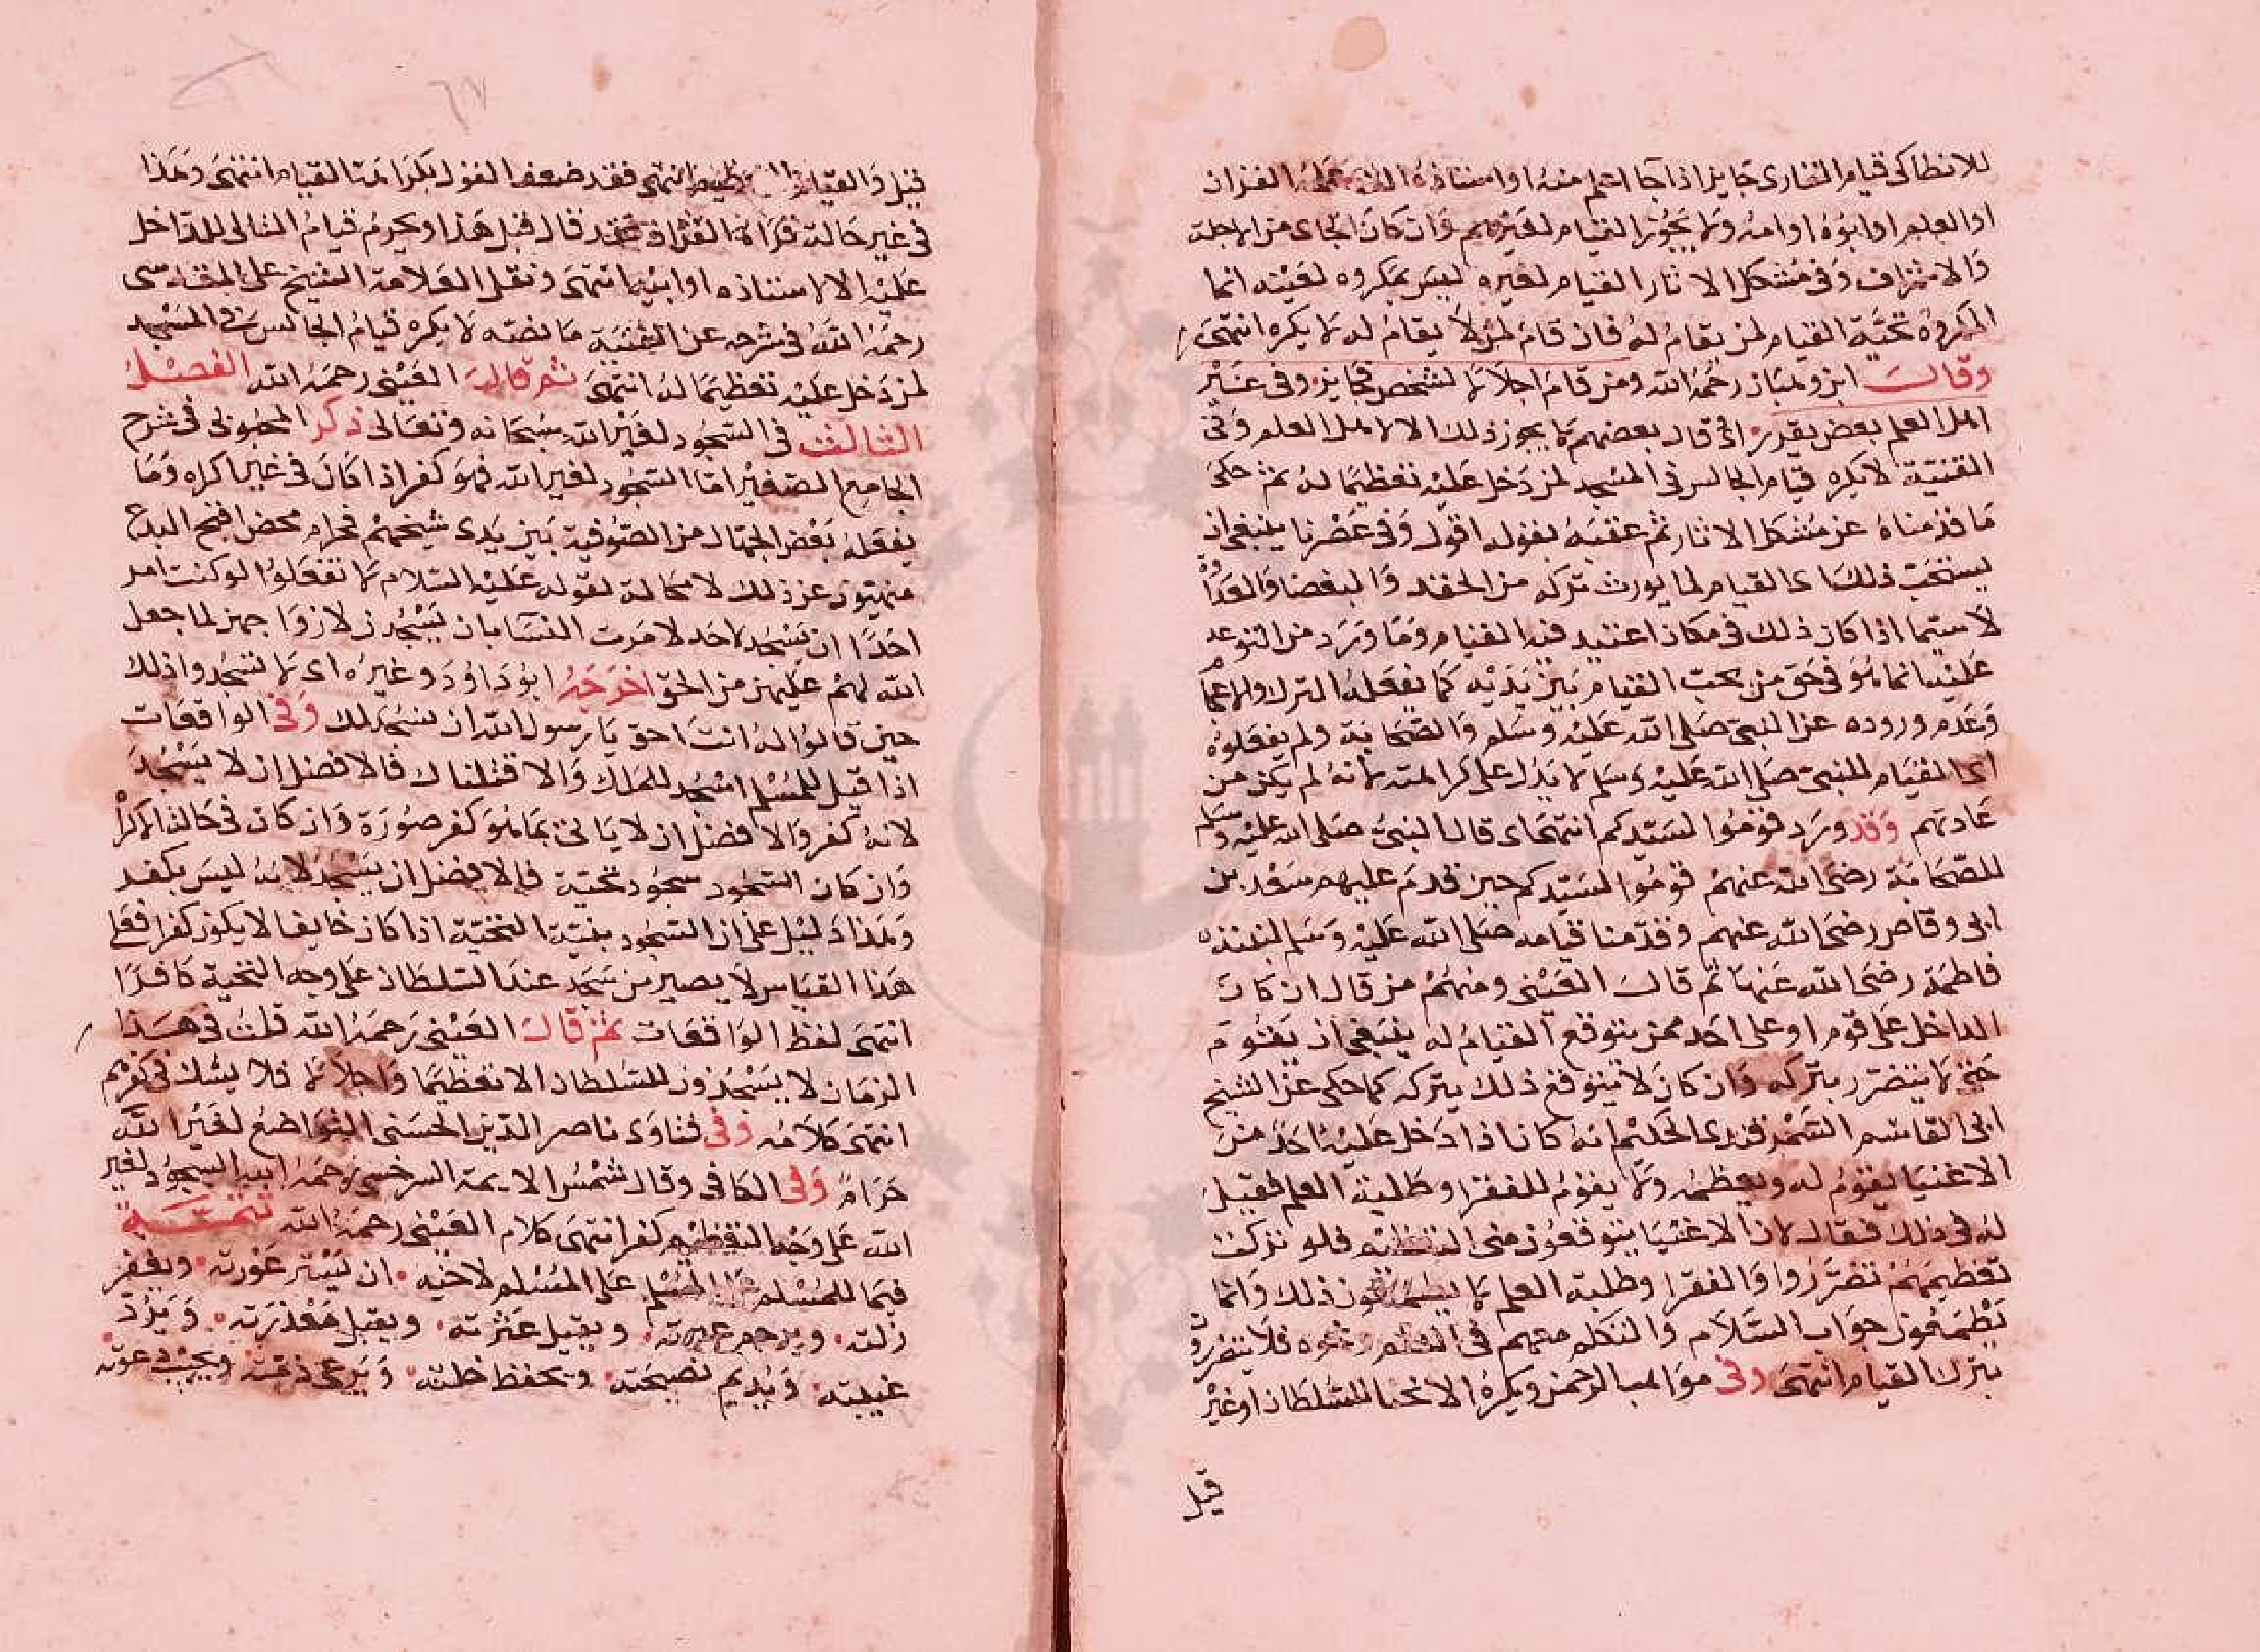 للانطاكى قيام القارى جايز اذا جا اعلم منه او استاذه الذى علمه القران
او العلم او ابوه او امه ولا يجوز القيام لغيرهم وان كان الجاى من الاجلة
والاشراف وفى مشكل الاثار القيام لغيره ليس بمكروه لعينه انما
المكروه محبة القيام لمن يقام له فان قام لمن لا يقام له لا يكره انتهى
وقال ابن وهبان رحمه الله ومن قام اجلالا لشخص فجايز وفى غير
اهل العلم بعض يقرر اى قال بعضهم لا يجوز ذلك الا لاهل العلم وفى
القنية لا يكره قيام الجالس فى المسجد لمن دخل عليه تعظيما له ثم حكى
ما قدمناه عن مشكل الاثار ثم عقبه بقوله اقول وفى عصرنا ينبغى ان
يستحب ذلك اى القيام لما يورث تركه من الحقد والبغضا والعداوة
لاسيما اذا كان ذلك فى مكان اعتيد فيه القيام وما ورد من التوعد
عليه انما هو فى حق من يحب القيام بين يديه كما يفعله الترك والاعجام
وعدم وروده عن النبى صلى الله عليه وسلم والصحابة ولم يفعلوه
اى القيام للنبى صلى الله عليه وسلم لا يدل على كراهته لانه لم يكن من
عادتهم وقد ورد قوموا لسيدكم انتهى اى قال النبى صلى الله عليه وسلم
للصحابة رضى الله عنهم قوموا لسيدكم حين قدم عليهم سعد بن
ابى وقاص رضى الله عنهم وقدمنا قيامه صلى الله عليه وسلم لبنته
فاطمة رضى الله عنها ثم قال العينى ومنهم من قال ان كان
الداخل على قوم او على احد ممن يتوقع القيام له ينبغى ان يقوم
حتى لا يتضرر بتركه وان كان لا يتوقع ذلك يتركه كما حكى عن الشيخ
ابى القاسم السمرقندى الحكيم انه كان اذا دخل عليه احد من
الاغنيا يقوم له ويعظمه ولا يقوم للفقرا وطلبة العلم فقيل
له فى ذلك فقال لان الاغنيا يتوقعون منى التعظيم فلو تركت
تعظيمهم تضرروا والفقرا وطلبة العلم لا يطمعون ذلك وانما
يطمعون جواب السلام والتكلم معهم فى العلم ونحوه فلا يتضررون
بترك القيام انتهى وفى مواهب الرحمن ويكره الانحنا للسلطان او غيره
قيل
قيل والقيام التعظيم انتهى فقد ضعف القول بكراهة القيام انتهى وهذا
فى غير حالة قراة القران فقد قال قبل هذا ويحرم قيام التالى للداخل
عليه الا لاستاذه او ابيه انتهى ونقل العلامة الشيخ على المقدسى
رحمه الله فى شرحه عن القنية ما نصه لا يكره قيام الجالس فى المسجد
لمن دخل عليه تعظيما له انتهى ثم قال العينى رحمه الله الفصل
الثالث فى السجود لغير الله سبحانه وتعالى ذكر المحبوبى فى شرح
الجامع الصغير اما السجود لغير الله فهو كفر اذا كان فى غير اكراه وما
يفعله بعض الجهال من الصوفية بين يدى شيخهم فحرام محض اقبح البدع
منهيون عن ذلك لا محالة لقوله عليه السلام لا تفعلوا لو كنت امر
احدا ان يسجد لاحد لامرت النسا بان يسجدن لازواجهن لما جعل
الله لهم عليهن من الحق اخرجه ابو داوود وغيره اى لا تسجدوا ذلك
حين قالوا له انت احق يا رسول الله ان نسجد لك وفى الواقعات
اذا قيل للمسلم اسجد للملك والا قتلناك فالافضل ان لا يسجد
لانه كفر والافضل ان لا ياتى بما هو كفر صورة وان كان فى حالة الاكراه
وان كان السجود سجود تحية فالافضل ان يسجد لانه ليس بكفر
وهذا دليل على ان السجود بنية التحية اذا كان خايفا لا يكون كفرا فعلى
هذا القياس لا يصير من سجد عند السلطان على وجه التحية كافرا
انتهى لفظ الواقعات ثم قال العينى رحمه الله قلت فى هذا
الزمان لا يسجدون للسلطان الا تعظيما واجلالا فلا يشك فى كفرهم
انتهى كلامه وفى فتاوى ناصر الدين الحسنى التواضع لغير الله
حرام وفى الكافى وقال شمس الايمة السرخسى رحمه الله السجود لغير
الله على وجه التعظيم كفر انتهى كلام العينى رحمه الله تتمة
فيما للمسلم على المسلم على المسلم لاخيه ان يستر عورته ويغفر
زلته ويرحم عبرته ويقيل عثرته ويقبل معذرته ويرد
غيبته ويديم نصيحته ويحفظ خلته ويرعى ذمته ويجيب دعوته